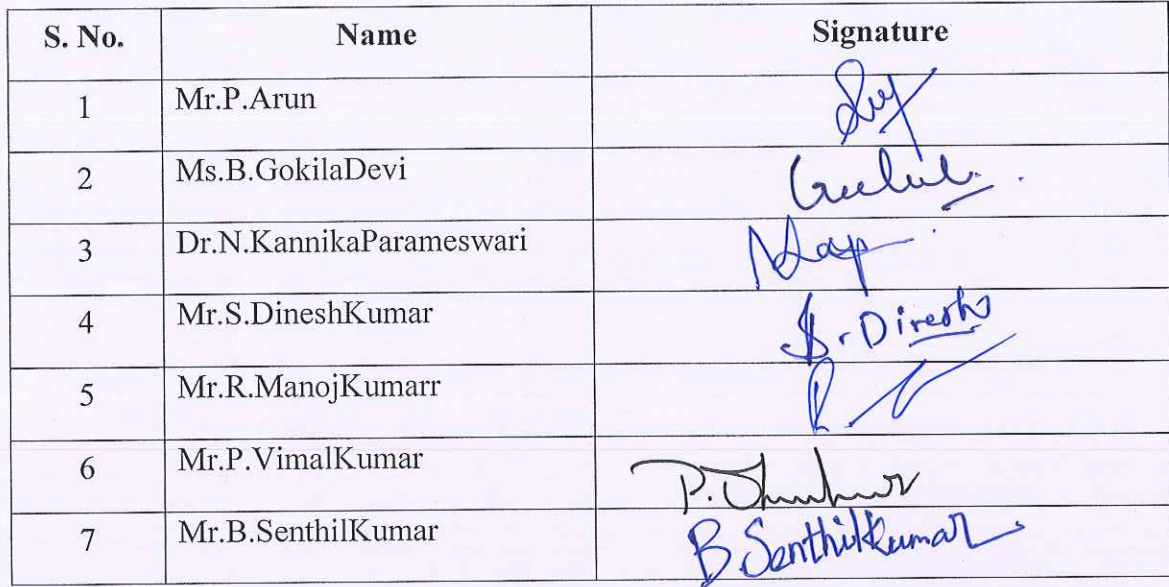 S. No. Name Signature
1 Mr.P.Arun
2 Ms.B.GokilaDevi
3 Dr.N.KannikaParameswari
4 Mr.S.DineshKumar S. Dinesh
5 Mr.R.ManojKumarr R
6 Mr.P.VimalKumar P.
7 Mr.B.SenthilKumar B.Senthilkumar